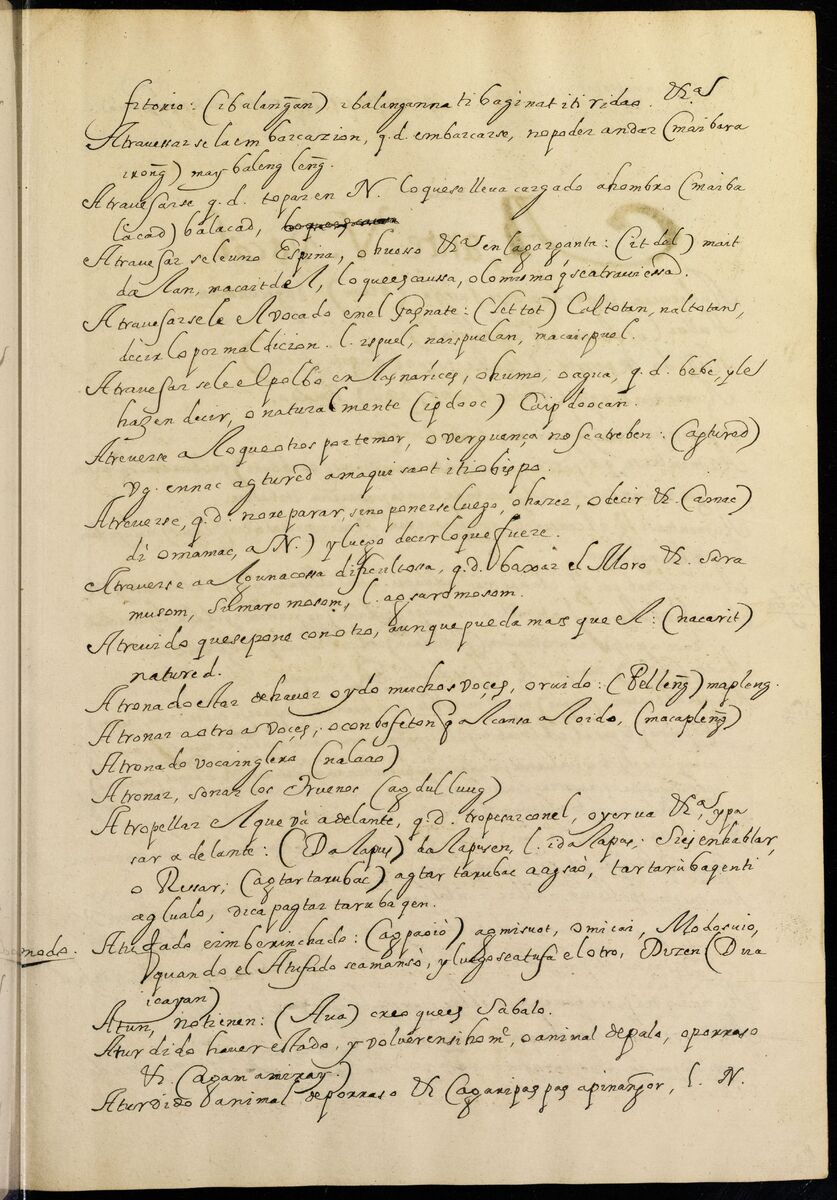 fitorio: (ibalangan) ibalanganna ti baginat iti ridao. &.as
Atravessarse la embarcaszion, q.d. embarcarse, no poder andar (maibara
) may baleng leng.
Atravesarse q.d. topar en N. lo que se lleva cargado a hombro (maiba
lacad) balacad,
Atravesarsele uno Espina, o huesso &.as en la garganta: (itdel) mait
dellan, macaitdel, lo que es caussa, o lo mismo q se atraviessa.
Atravesarsele el vocado en el gaznate: (settot) Caltotan, naltotans,
decirlo por maldicion. l. ispel, naispuelan, macaispuel.
Atravesarsele el polbo en las narices, o humo, o agua, q.d. bebe, y le
hazen decir, o naturalmente (ipdooc) Caipdoocan.
Atreverse a lo que otros por temor, o verguença no se atreben: (agtured)
vg. ennac agtured a maquisaot iti obispo.
Atreverse, q.d. no reparar, sino ponerse luego, o hazer, o decir &. (amac)
di omamac, a N.) y luego decir lo que fuere.
Atreverse a alguna cossa dificultosa, q.d. baxar el Moro &. sara
musom, sumaromosom, l. agsaromosom.
Atrevido que se pone con otro, aunque pueda mas que el: (nacarit)
natured.
Atronado estar de haver oydo muchos voçes, o ruido: (Pelleng) mapleng.
Atronar a otro a voçes, o con bofeton q alcansa al oido, (macapleng)
Atronado vocinglero (nalaao)
Atronar, sonar los truenos (agdulluug)
Atropellar el que và adelante, q.d. tropesar con el, o yerua &.as, y pa
sar adelante: (Dalapus) dalapusen, l. idalapus: si es en hablar,
o Ressar, (agtartarubac) agtartarubac a agsaò, tartarùbaqenti
aglualo, dica pagtartarubaqen.
Atufado emberrinchado: (agpaoiò) agmisuot, omicai, Modosuio,
modo.
quando el Atufado se amansò, y luego se atufa el otro, Dizen (Dua
icayan)
Atun, no tienen: (Aua) creo que es Sabalo.
Aturdido haver estado, y volver en si home, o animal de palo, o porraso
&. (agam amirays)
Aturdido animal de porraso & (agaripaspas apinangor, l. N.